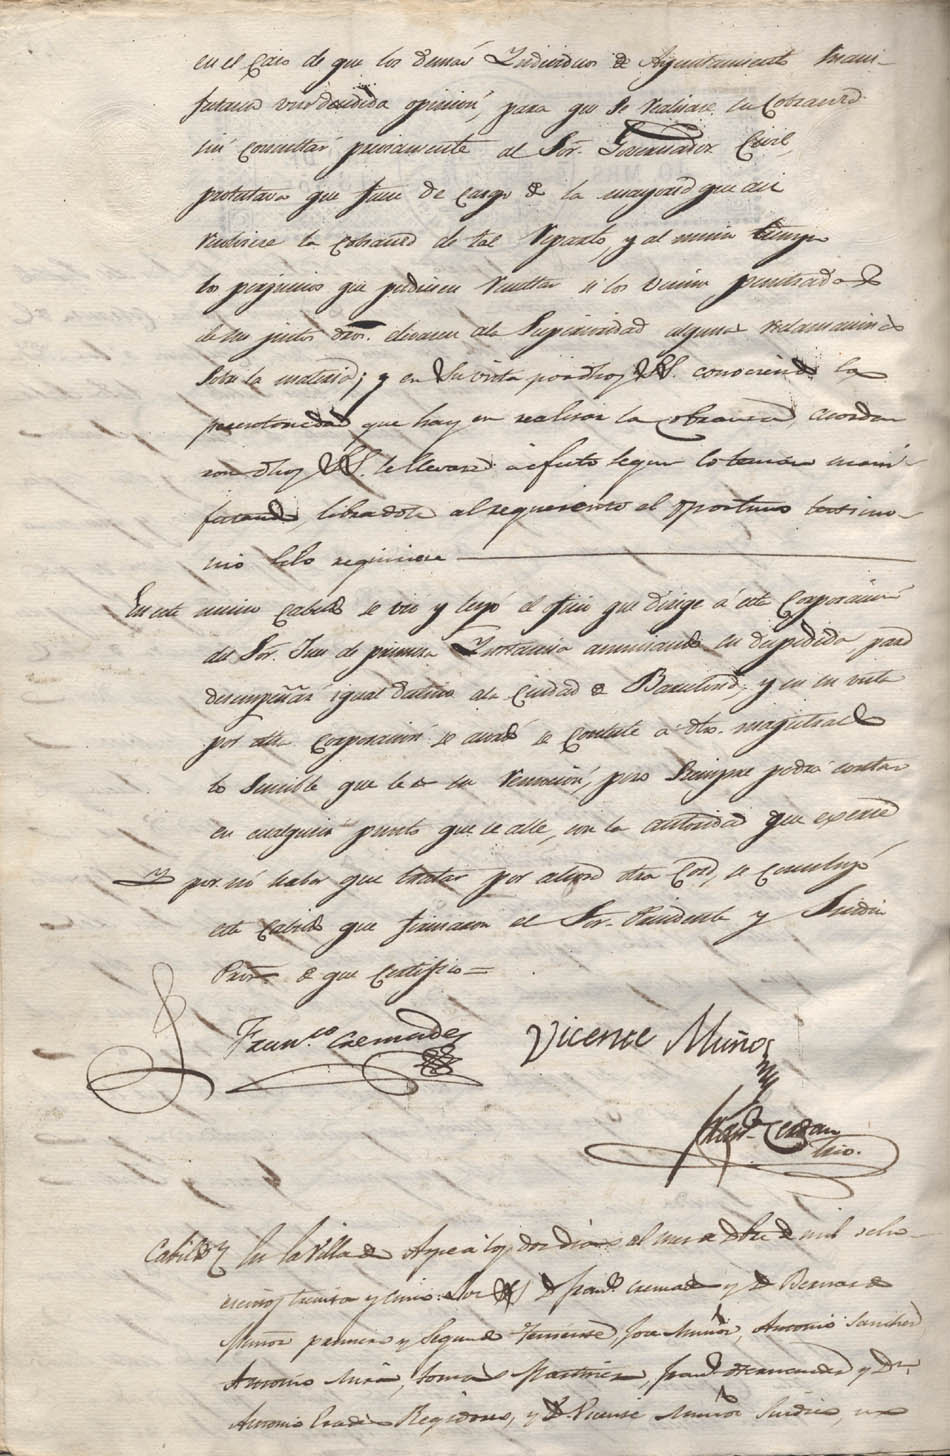 en el Caso de que los demás Individuos de Ayuntamiento mani-
festasen opinión, para que se realizare la Cobranza
sin consultár previamente al Sor. Governador Civil,
protestava que fuese de cargo de la mayoría que asi
la cobranza de tal Reparto, y al mismo tiempo
los perjuicios que pudiesen resultar si los Vecinos penetrados
de sus justos dros. elevasen ala Superioridad alguna reclamacion
sobre la materia; y en su vista por dhos SS. conociendo la
perentoriedad que hay en realisar la cobranza, acorda-
ron dhos SS. se llevase á efecto segun lo tenian mani-
festando, librandole al requirente el oportuno testimo-
nio si lo requiriese
En este mismo Cabildo se vio y leyó el oficio que dirige á esta Corporación
del Sor. Juez de primera Instancia anunciando su despedida, para
desempeñar igual destino ala Ciudad de y en su vista
por dha. Corporación se acordó se conteste á dho. magistrado
lo Sencible que le es su remoción, pero siempre podrá contar
en cualquier punto que se alle, con la autoridad que exerce
Y por nó haber que tratar por ahora otra Cosa, se concluyó
este Cabildo que firmaron el Sor. Presidente y Sindico
de que Certifico =
Franco. Cremades Vicente Muños
Franco.
Srio.
Cabildo En la Villa de Aspe á los dos dias del mes de Obre de mil ocho-
cientos treinta y cinco: Los SS D. Franco. Cremades y D. Bernardo
Muñoz primero y Segundo Teniente, Jose Muñoz, Antonio Sanchez
Antonio Mira, Tomas Martinez, Franco. Hernandez y Dn.
Antonio Regidores, y D. Vicente Muñoz Sindico,